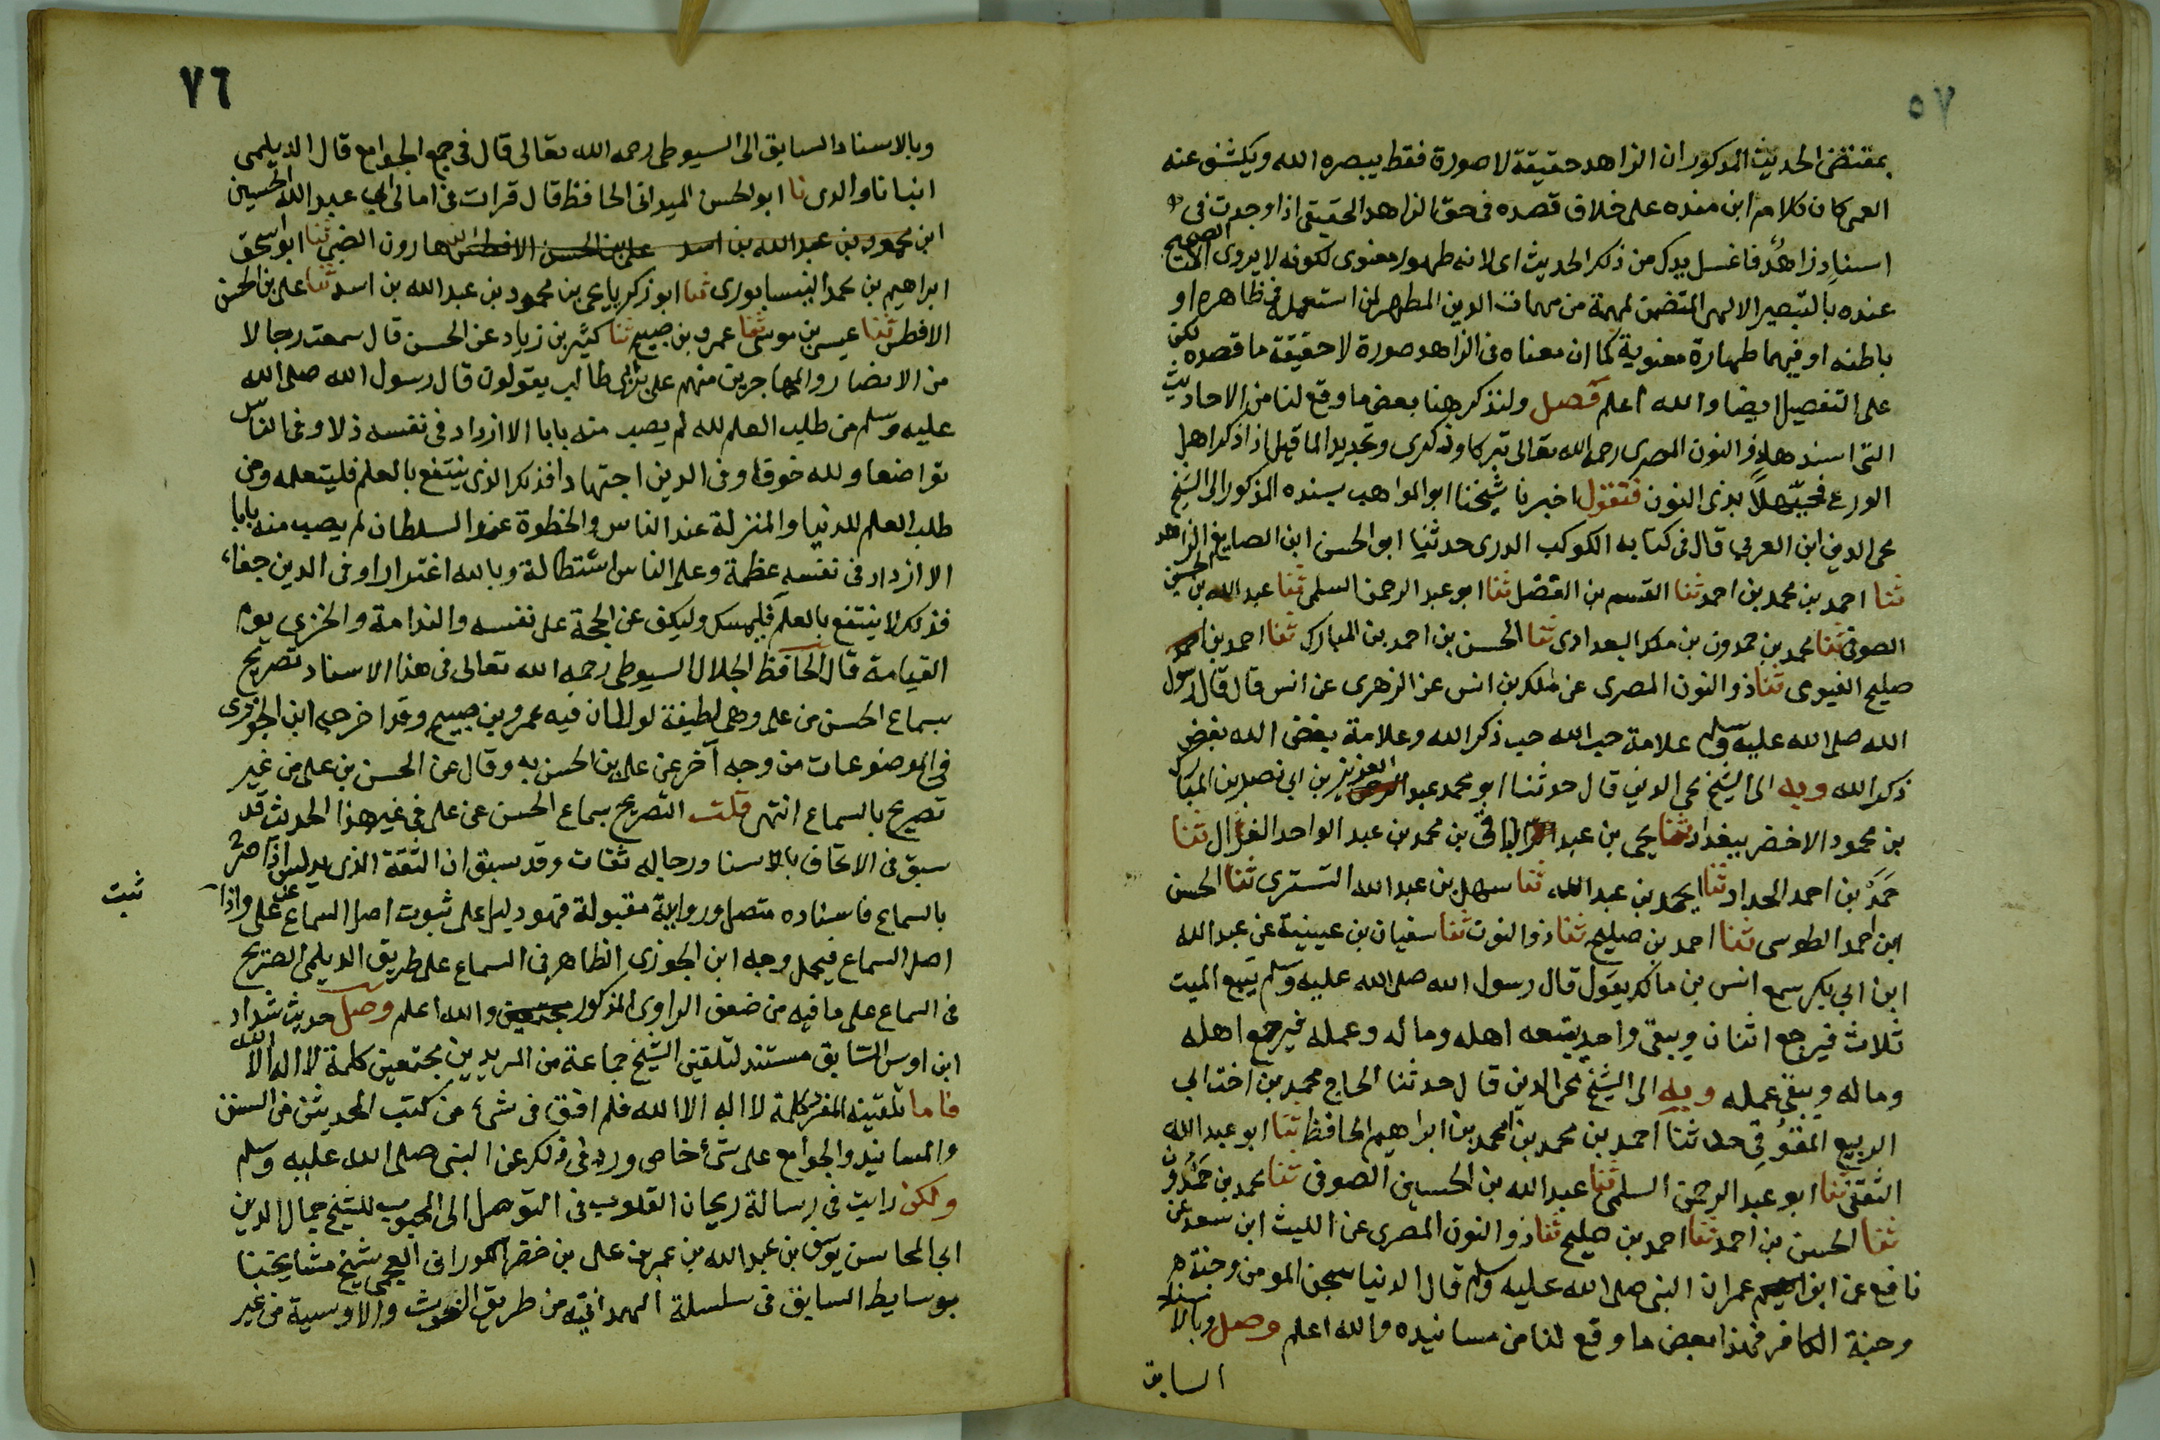 ٥٧
بمقتضى الحديث المذكور ان الزاهد حقيقة لا صورة فقط يبصره الله ويكشف عنه
العمى كان كلام ابن منده على خلاف قصده فى حق الزاهد الحقيقى اذا وجدت فى
اسناد زاهدٌ فاغسل يدك من ذلك الحديث اى لانه طهور معنوى لكونه لا يروى الا الصحيح
عنده بالتبصير الالهى المتضمن لمهمة من مهمات الدين المطهر لمن استعمله فى ظاهره او
باطنه او فيهما طهارة معنوية كما ان معناه فى الزاهد صورة لا حقيقة ما قصده لكن
على التفصيل ايضا والله اعلم فصل ولنذكر هنا بعض ما وقع لنا من الاحاديث
التى اسندها ذو النون المصرى رحمه الله تعالى تبركا وذكرى وتجديدا لما قيل اذا ذكر اهل
الورع فحيّهلاً بذى النون فنقول اخبرنا شيخنا ابو المواهب بسنده المذكور الى الشيخ
محى الدين ابن العربي قال فى كتابه الكوكب الدرى حدثنا ابو الحسن ابن الصايغ الزاهد
ثنا احمد بن محمد بن احمد ثنا القسم بن الفضل ثنا ابو عبد الرحمن السلمى ثنا عبد الله بن الحسين
الصوفى ثنا محمد بن حمدون بن ملك البغدادى ثنا الحسن بن احمد بن المبارك ثنا احمد بن
صليح الفيومى ثنا ذو النون المصرى عن ملك بن انس عن الزهرى عن انس قال قال رسول
الله صلى الله عليه وسلم علامة حب الله حب ذكر الله وعلامة بغض الله بغض
ذكر الله وبه الى الشيخ محى الدين قال حدثنا ابو محمد عبد العزيز بن ابي نصر بن المبارك
بن محمود الاخضر ببغداد ثنا يحيى بن عبد الباقى بن محمد بن عبد الواحد الغزال ثنا
حَمَد بن احمد الحداد ثنا احمد بن عبد الله ثنا سهل بن عبد الله التسترى ثنا الحسن
ابن احمد الطوسى ثنا احمد بن صليح ثنا ذو النون ثنا سفيان بن عيينة عن عبد الله
ابن ابي بكر سمع انس بن مالك يقول قال رسول الله صلى الله عليه وسلم يتبع الميت
ثلاث فيرجع اثنان ويبقى واحد يتبعه اهله وماله وعمله فيرجع اهله
وماله ويبقى عمله وبه الى الشيخ محى الدين قال حدثنا الحاج محمد بن اخت ابي
الربيع المقوُقِى حدثنا احمد بن محمد بن احمد بن ابراهيم الحافظ ثنا ابو عبد الله
الثقفى ثنا ابو عبد الرحمن السلمى ثنا عبد الله بن الحسين الصوفى ثنا محمد بن حمدون
ثنا الحسين بن احمد ثنا احمد بن صليح ثنا ذو النون المصرى عن الليث ابن سعد عن
نافع عن ابن عمر ان النبى صلى الله عليه وسلم قال الدنيا سجن المومن وجنته
وجنة الكافر فهذا بعض ما وقع لنا من مسانيده والله اعلم وصل وبالاسناد
السابق
٧٦
وبالاسناد السابق الى السيوطى رحمه الله تعالى قال فى جمع الجوامع قال الديلمى
انبانا والدى نا ابو الحسن الميدانى الحافظ قال قرات فى امالى ابي عبد الله الحسين
ابن محمد بن هارون الضبى ثنا ابو اسحق
ابراهيم بن محمد النيسابورى ثنا ابو زكريا يحيى بن محمود بن عبد الله بن اسد ثنا على بن الحسن
الافطس ثنا عيسى بن موسى ثنا عمرو بن صبيح ثنا كثير بن زياد عن الحسن قال سمعت رجالا
من الانصار والمهاجرين منهم على بن ابى طالب يقولون قال رسول الله صلى الله
عليه وسلم من طلب العلم لله لم يصب منه بابا الا ازداد فى نفسه ذلا وفى الناس
تواضعا ولله خوفا وفى الدين اجتهادا فذلك الذى ينتفع بالعلم فليتعلمه ومن
طلب العلم للدنيا والمنزلة عند الناس والحظوة عند السلطان لم يصب منه بابا
الا ازداد فى نفسه عظمة وعلى الناس استطالة وبالله اغترارا وفى الدين جفاء
فذلك لا ينتفع بالعلم فليمسك وليكف عن الحجة على نفسه والندامة والخزى يوم
القيامة قال الحافظ الجلال السيوطى رحمه الله تعالى فى هذا الاسناد تصريح
بسماع الحسن من على وهى لطيفة لولا ان فيه عمرو بن صبيح وقد اخرجه ابن الجوزى
فى الموضوعات من وجه آخر عن على بن الحسن به وقال عن الحسن بن على من غير
تصريح بالسماع انتهى قلت التصريح بسماع الحسن عن على فى غير هذا الحديث قد
سبق فى الاتحاف بالاسنا ورجاله ثقات وقد سبق ان الثقة الذى يدلس اذا صرح
بالسماع فاسناده متصل وروايته مقبولة فهو دليل على ثبوت اصل السماع عن على واذا
ثبت
اصل السماع فيحمل وجه ابن الجوزى الظاهر فى السماع على طريق الديلمى الصريح
فى السماع على ما فيه من ضعف الراوى المذكور والله اعلم وصل حديث شداد
ابن اوس السابق مستند لتلقين الشيخ جماعة من المريدين مجتمعين كلمة لا اله الا الله
فاما تلقينه المفرد كلمة لا اله الا الله فلم اقف فى شىء من كتب الحديث من السنن
والمسانيد والجوامع على شئ خاص ورد فى ذلك عن النبى صلى الله عليه وسلم
ولكن رايت فى رسالة ريحان القلوب فى التوصل الى المحبوب للشيخ جمال الدين
ابي المحاسن يوسف بن عبد الله بن عمر بن على بن خضر الكورانى العجمى شيخ مشايخنا
بوسايط السابق فى سلسلة الهمدانيه من طريق الغوث والاوسية من غير